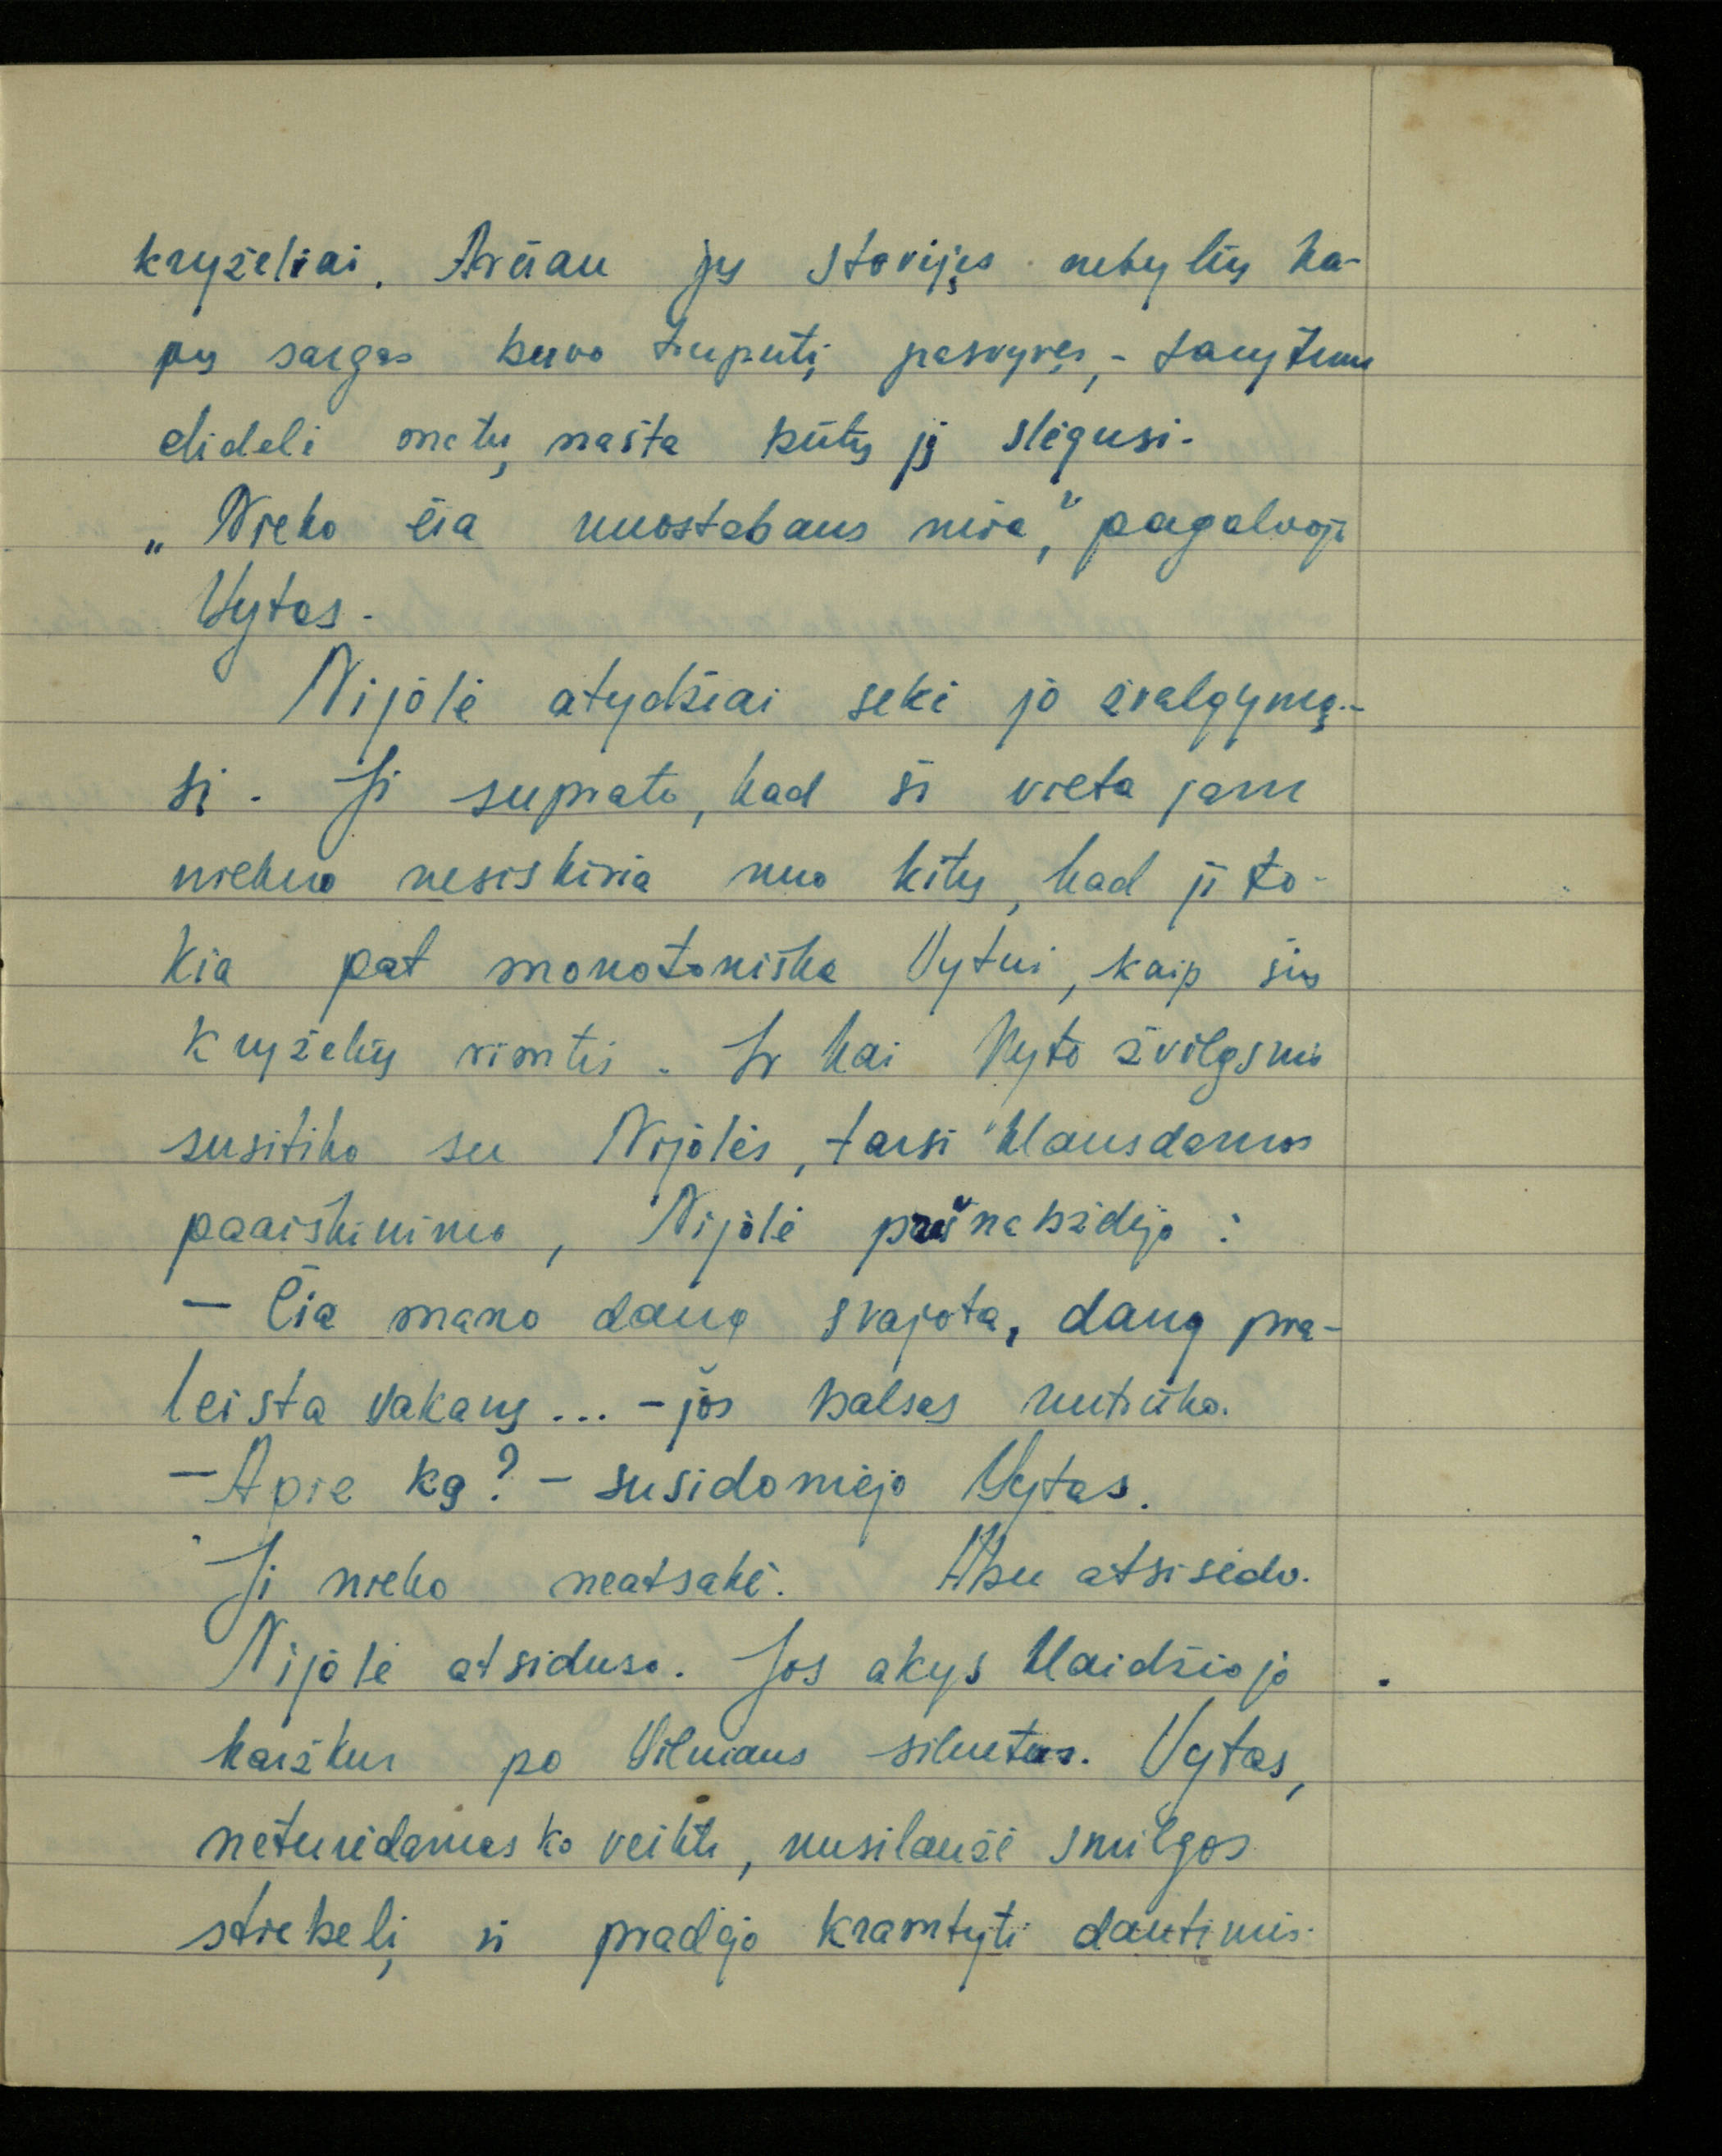 kryželiai. Arčiau jų stovįjęs nebylių ka-
pų sargas buvo truputį pasvyręs, - tarytum
dideli metų našta būtų jį slėgusi.
„Nieko čia nuostabaus nėra," pagalvojo
Vytas.
Nijolė atydžiai sekė jo žvalgymą-
si. Ji suprato, kad ši vieta jam
niekuo nesiskiria nuo kitų, kad ji to-
kia pat monotoniška Vytui, kaip šių
kryželių rimtis. Ir kai Vyto žvilgsnis
susitiko su Nijolės, tarsi klausdamas
paaiškinimo, Nijolė prašnabždėjo:
- Čia mano daug svajota, daug pra-
leista vakarų... - jos balsas nutrūko.
- Apie ką? - susidomėjo Vytas.
Ji nieko neatsakė. Abu atsisėdo.
Nijolė atsiduso. Jos akys klaidžiojo
kažkur po Vilniaus siluetus. Vytas,
neturėdamas ko veikti, nusilaužė smilgos
stiebelį ir pradėjo kramtyti dantimis.